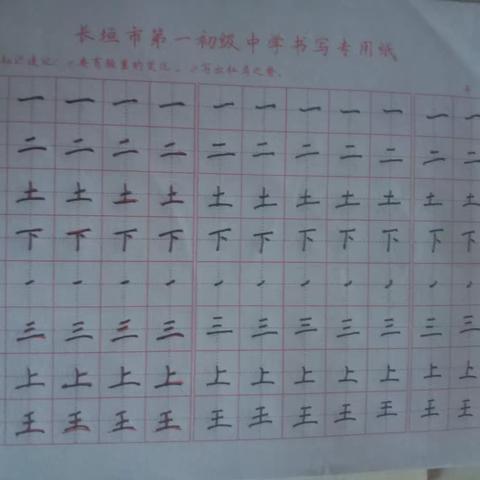 长垣市第一初级中学书写专用纸
一 一 一 一 一 一 一 一 一 一 一
二 二 二 二 二 二 二 二 二 二 二
土 土 土 土 土 土 土 土 土 土 土
下 下 下 下 下 下 下 下 下 下 下
三 三 三 三 三 三 三 三 三 三 三
上 上 上 上 上 上 上 上 上 上 上
王 王 王 王 王 王 王 王 王 王 王